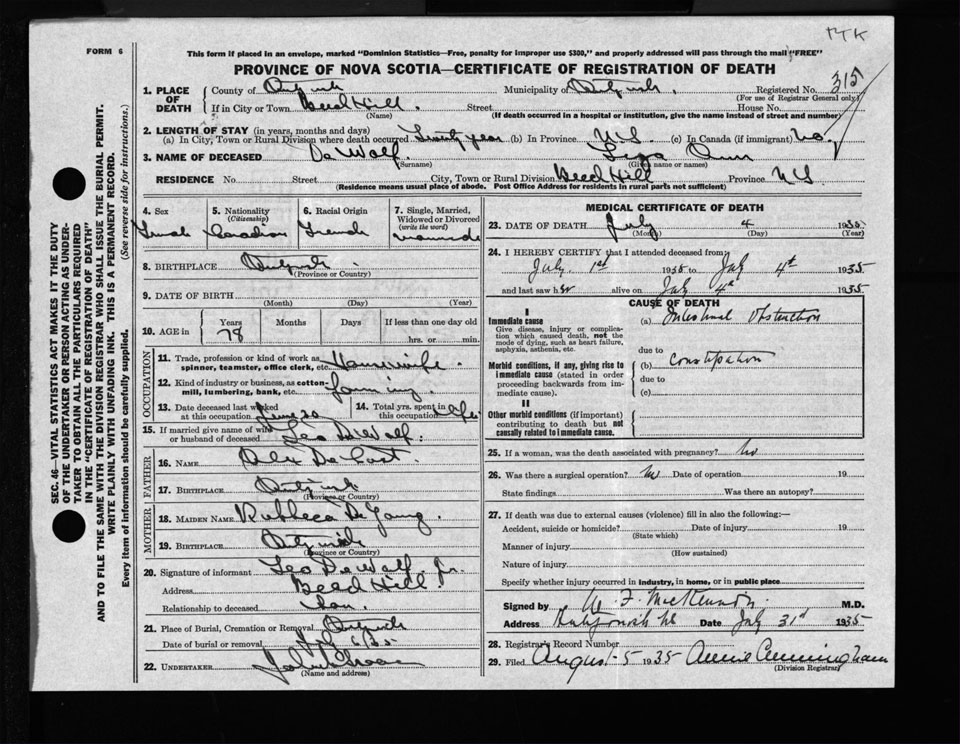 TYK
FORM 6
This form if placed in an envelope, marked "Dominion Statistics—Free, penalty for improper use $300," and properly addressed will pass through the mail "FREE"
PROVINCE OF NOVA SCOTIA—CERTIFICATE OF REGISTRATION OF DEATH
SEC. 46—VITAL STATISTICS ACT MAKES IT THE DUTY
OF THE UNDERTAKER OR PERSON ACTING AS UNDER-
TAKER TO OBTAIN ALL THE PARTICULARS REQUIRED
IN THE "CERTIFICATE OF REGISTRATION OF DEATH"
AND TO FILE THE SAME WITH THE DIVISION REGISTRAR WHO SHALL ISSUE THE BURIAL PERMIT.
WRITE PLAINLY WITH UNFADING INK. THIS IS A PERMANENT RECORD.
Every item of information should be carefully supplied. (See reverse side for instructions.)
1. PLACE OF DEATH County of Municipality of Registered No. 315
(For use of Registrar General only)
If in City or Town Beed Hill. Street House No.
(Name) (If death occurred in a hospital or institution, give the name instead of street and number)
2. LENGTH OF STAY (in years, months and days)
(a) In City, Town or Rural Division where death occurred year (b) In Province N.S. (c) In Canada (if immigrant) no
3. NAME OF DECEASED De Wolf. Liza Ann
(Surname) (Given name or names)
RESIDENCE No. Street City, Town or Rural Division Beed Hill Province N.S.
(Residence means usual place of abode. Post Office Address for residents in rural parts not sufficient)
4. Sex 5. Nationality (Citizenship) 6. Racial Origin 7. Single, Married, Widowed or Divorced (write the word)
Female Canadian French
8. BIRTHPLACE
(Province or Country)
9. DATE OF BIRTH
(Month) (Day) (Year)
10. AGE in Years Months Days If less than one day old
78 hrs. or min.
OCCUPATION
11. Trade, profession or kind of work as spinner, teamster, office clerk, etc. Housewife
12. Kind of industry or business, as cotton-mill, lumbering, bank, etc. farming
13. Date deceased last worked at this occupation June 20 14. Total yrs. spent in this occupation life
15. If married give name of wife or husband of deceased Leo DeWolf.
FATHER
16. NAME Alex De Cost.
17. BIRTHPLACE
(Province or Country)
MOTHER
18. MAIDEN NAME Rebbeca De Young
19. BIRTHPLACE
(Province or Country)
20. Signature of informant Leo De Wolf. Jr.
Address Beed Hill
Relationship to deceased Son.
21. Place of Burial, Cremation or Removal
Date of burial or removal July 6
22. UNDERTAKER
(Name and address)
MEDICAL CERTIFICATE OF DEATH
23. DATE OF DEATH July 4 1935.
(Month) (Day) (Year)
24. I HEREBY CERTIFY that I attended deceased from
July. 1st 1935 to July 4th 1935
and last saw her alive on July 4th 1935
CAUSE OF DEATH
I
Immediate cause
Give disease, injury or complication which caused death, not the mode of dying, such as heart failure, asphyxia, asthenia, etc.
(a) Intestinal Obstruction
due to
Morbid conditions, if any, giving rise to immediate cause (stated in order proceeding backwards from immediate cause).
(b) Constipation
due to
(c)
II
Other morbid conditions (if important) contributing to death but not causally related to immediate cause.
25. If a woman, was the death associated with pregnancy? No
26. Was there a surgical operation? No Date of operation 19
State findings Was there an autopsy?
27. If death was due to external causes (violence) fill in also the following:—
Accident, suicide or homicide? Date of injury 19
(State which)
Manner of injury
(How sustained)
Nature of injury
Specify whether injury occurred in industry, in home, or in public place
Signed by W. F. MacKinnon M.D.
Address Antigonish NS Date July 31st 1935
28. Registrar's Record Number
29. Filed August 5 1935 Annie Cunningham
(Division Registrar)